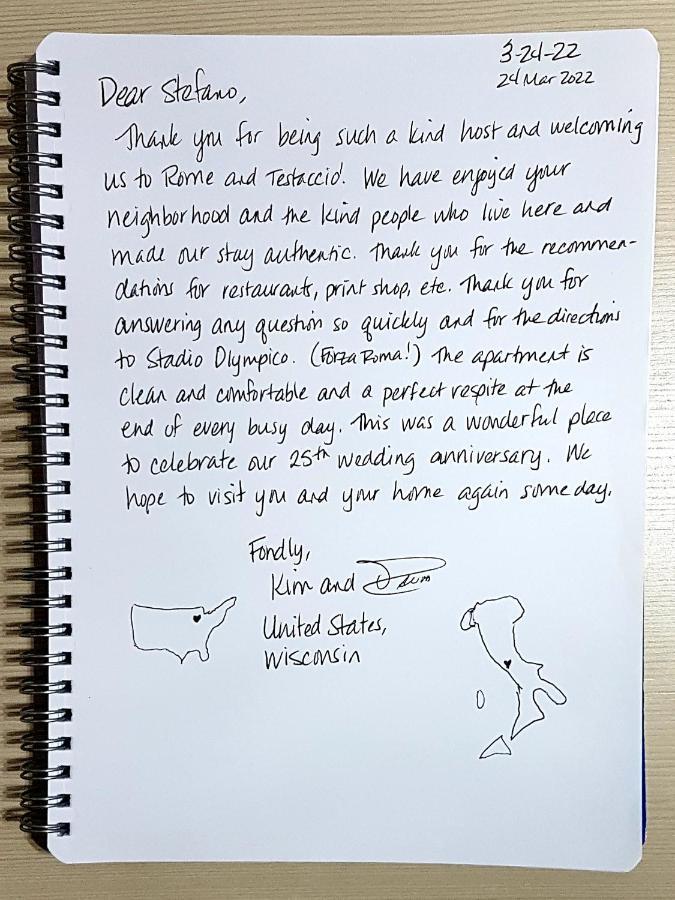 3-24-22
24 Mar 2022
Dear Stefano,
Thank you for being such a kind host and welcoming
us to Rome and Testaccio! We have enjoyed your
neighborhood and the kind people who live here and
made our stay authentic. Thank you for the recommen-
dations for restaurants, print shop, etc. Thank you for
answering any question so quickly and for the directions
to Stadio Olympico. (Forza Roma!) The apartment is
clean and comfortable and a perfect respite at the
end of every busy day. This was a wonderful place
to celebrate our 25th wedding anniversary. We
hope to visit you and your home again someday.
Fondly,
Kim and
United States,
Wisconsin